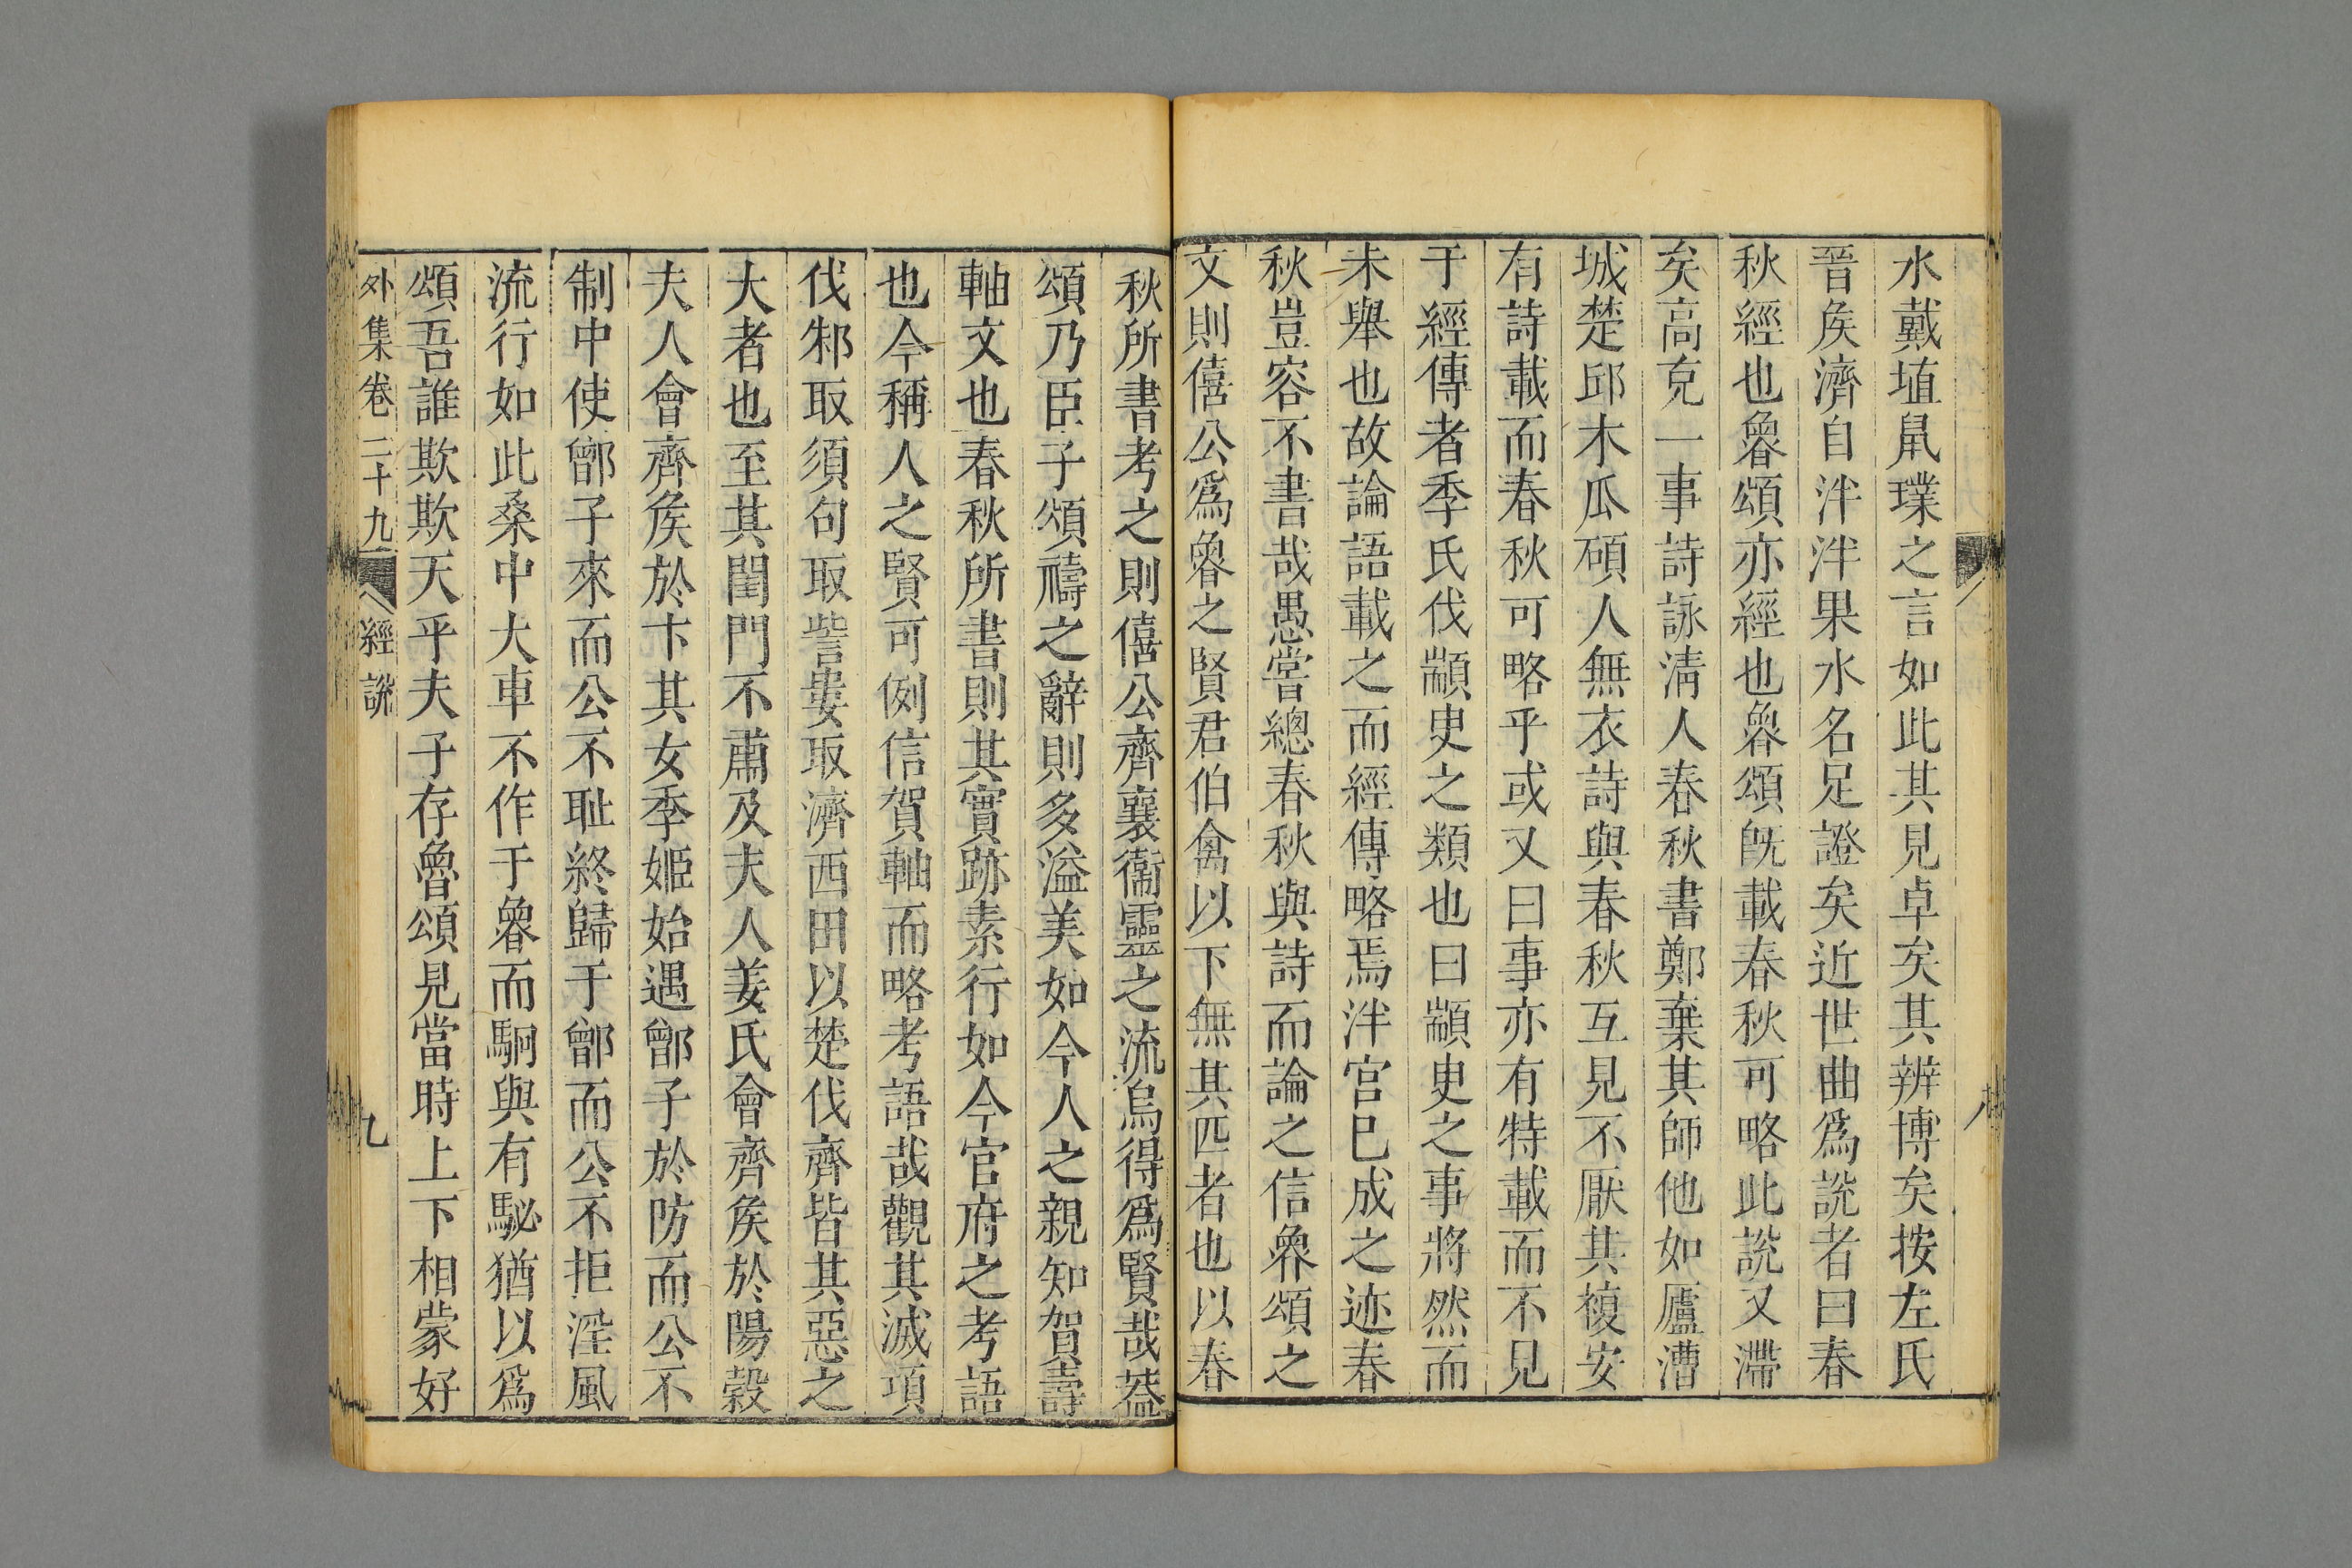 水戴埴鼠璞之言如此其見卓矣其辨博矣按左氏
晉矦濟自泮泮果水名足證矣近世曲爲說者曰春
秋經也魯頌亦經也魯頌旣載春秋可略此說又滯
矣高克一事詩詠淸人春秋書鄭棄其師他如廬漕
城楚邱木瓜碩人無衣詩與春秋互見不厭其複安
有詩載而春秋可略乎或又曰事亦有特載而不見
于經傳者季氏伐顓臾之類也曰顓臾之事將然而
未舉也故論語載之而經傳略焉泮宮已成之迹春
秋豈容不書哉愚嘗總春秋與詩而論之信魯頌之
文則僖公爲魯之賢君伯禽以下無其匹者也以春
秋所書考之則僖公齊襄衞靈之流烏得爲賢哉葢
頌乃臣子頌禱之辭則多溢美如今人之親知賀壽
軸文也春秋所書則其實跡素行如今官府之考語
也今稱人之賢可例信賀軸而略考語哉觀其滅項
伐邾取須句取訾婁取濟西田以楚伐齊皆其惡之
大者也至其閨門不肅及夫人姜氏會齊矦於陽穀
夫人會齊矦於卞其女季姬始遇鄫子於防而公不
制中使鄫子來而公不耻終歸于鄫而公不拒淫風
流行如此桑中大車不作于魯而駉與有駜猶以爲
頌吾誰欺欺天乎夫子存魯頌見當時上下相蒙好
外集卷二十九 經說 九